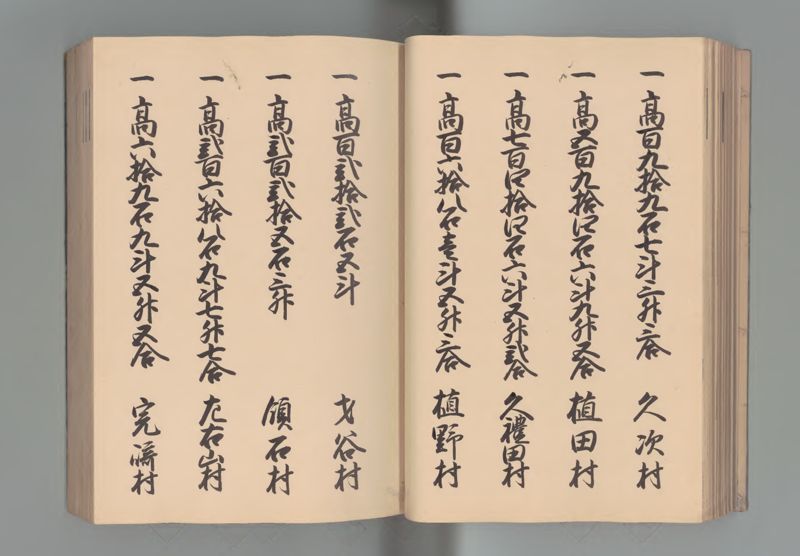 一高百九拾九石七斗三升三合 久次村
一高五百九拾四石六斗九升五合 植田村
一高七百四拾四石六斗五升弐合 久禮田村
一高百六拾八石壱斗五升三合 植野村
一高百弐拾弐石五斗 才谷村
一高弐百弐拾五石三升 領石村
一高弐百六拾八石九斗七升七合 左右山村
一高六拾九石九斗五升五合 宍崎村